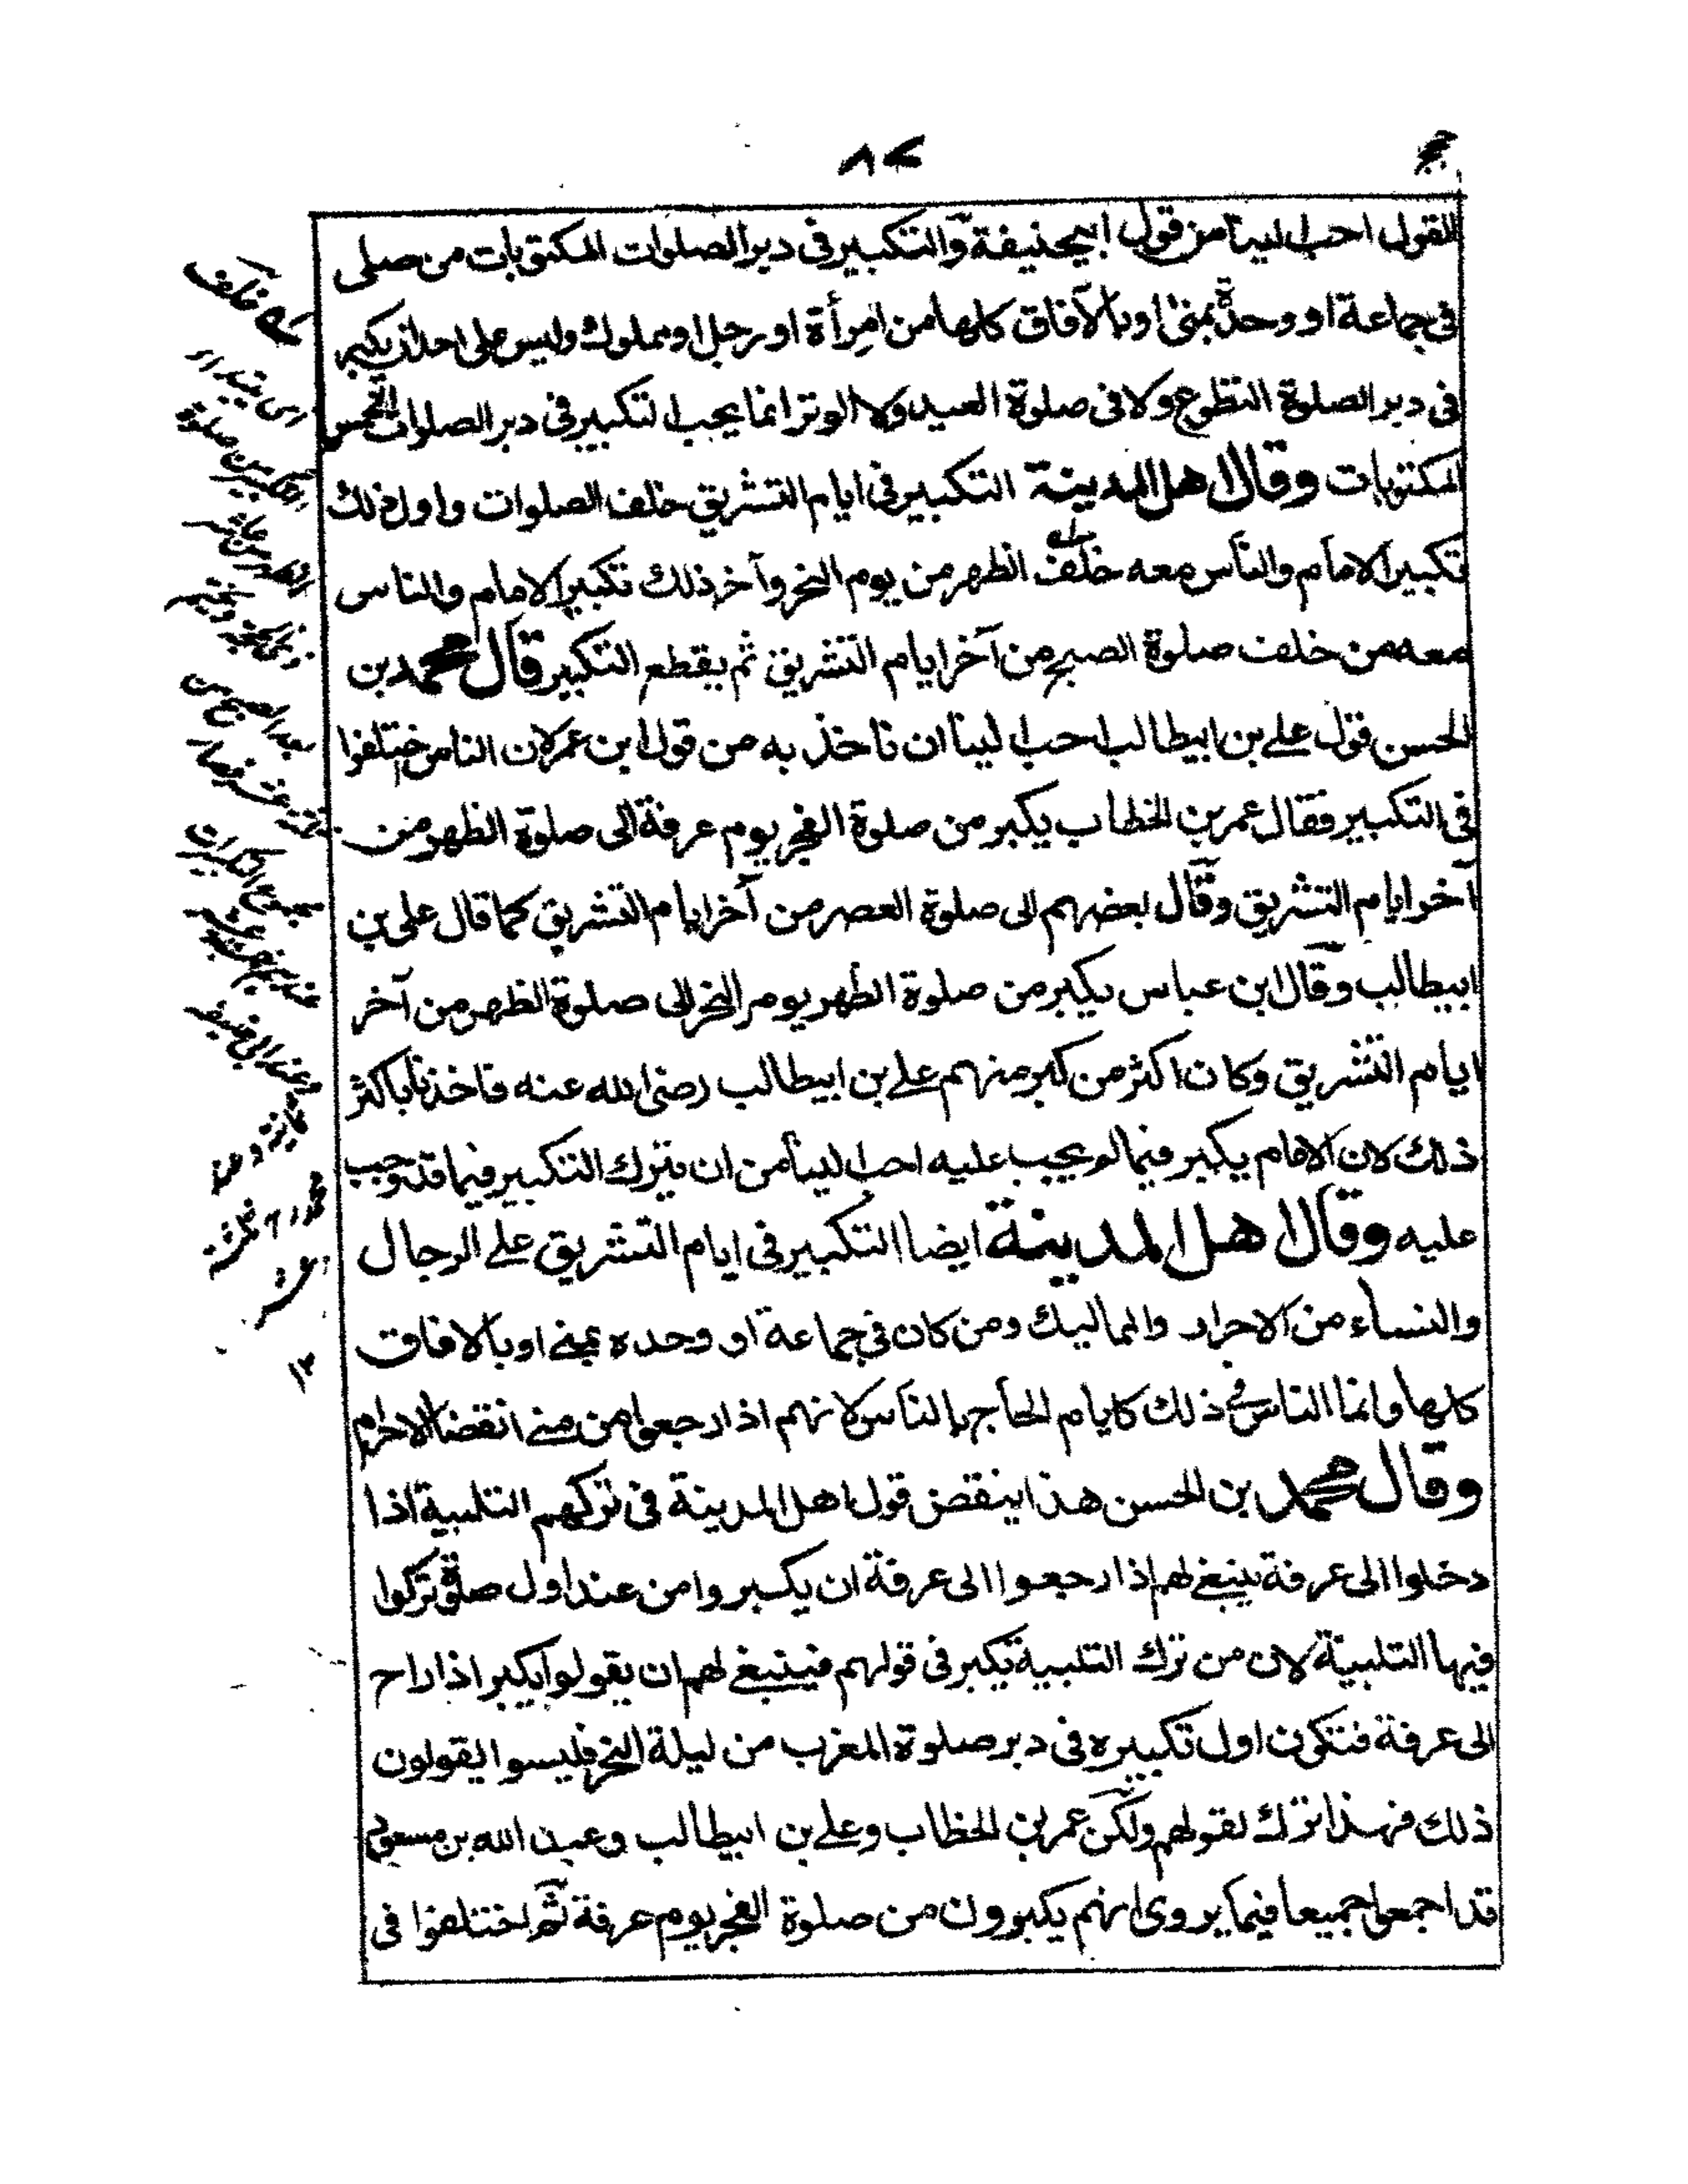 ٨٧
القول احب الينا من قول ابيحنيفة والتكبير فى دبر الصلوات المكتوبات من صلى
فى جماعة او وحدة بمنى او بالآفاق كلها من امرأة او رجل او مملوك وليس على احد ان يكبر
فى دبر الصلوة التطوع ولا فى صلوة العيد ولا الوتر انما يجب التكبير فى دبر الصلوات الخمس
المكتوبات وقال اهل المدينة التكبير فى ايام التشريق خلف الصلوات واول ذلك
تكبير الامام والناس معه خلف الظهر من يوم النحر وآخر ذلك تكبير الامام والناس
معه من خلف صلوة الصبح من آخر ايام التشريق ثم يقطع التكبير قال محمد بن
الحسن قول على بن ابيطالب احب الينا ان ناخذ به من قول ابن عمر لان الناس اختلفوا
فى التكبير فقال عمر بن الخطاب يكبر من صلوة الفجر يوم عرفة الى صلوة الظهر من
آخر ايام التشريق وقال بعضهم الى صلوة العصر من آخر ايام التشريق كما قال على بن
ابيطالب وقال ابن عباس يكبر من صلوة الظهر يوم النحر الى صلوة الظهر من آخر
ايام التشريق وكان اكثر من كبر منهم على بن ابيطالب رضى الله عنه فاخذنا باكثر
ذلك لان الامام يكبر فيما لم يجب عليه احب الينا من ان يترك التكبير فيما قد وجب
عليه وقال اهل المدينة ايضا التكبير فى ايام التشريق على الرجال
والنساء من الاحرار والمماليك ومن كان فى جماعة او وحده بمنى او بالافاق
كلها وانما الناس فى ذلك كايام الحاج بالناس لانهم اذا رجعوا من منى انقضا الاحرام
وقال محمد بن الحسن هذا ينقض قول اهل المدينة فى تركهم التلبية اذا
دخلوا الى عرفة ينبغى لهم اذا رجعوا الى عرفة ان يكبروا من عند اول صلوة تركوا
فيها التلبية لان من ترك التلبية تكبر فى قولهم فينبغى لهم ان يقولوا يكبر اذا راح
الى عرفة فتكون اول تكبيره فى دبر صلوة المغرب من ليلة النحر فليسوا يقولون
ذلك فهذا ترك لقولهم ولكن عمر بن الخطاب وعلى بن ابيطالب وعبد الله بن مسعود
قد اجمعوا جميعا فيما يروى انهم يكبرون من صلوة الفجر يوم عرفة ثم اختلفوا فى
١٢